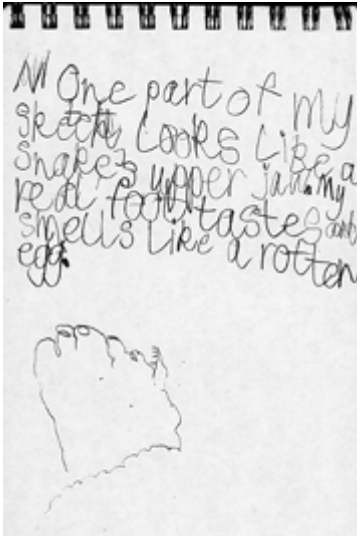 One part of my
sketch Looks Like a
snake's upper jaw. My
real foot tastes and
smells Like a rotten
egg.